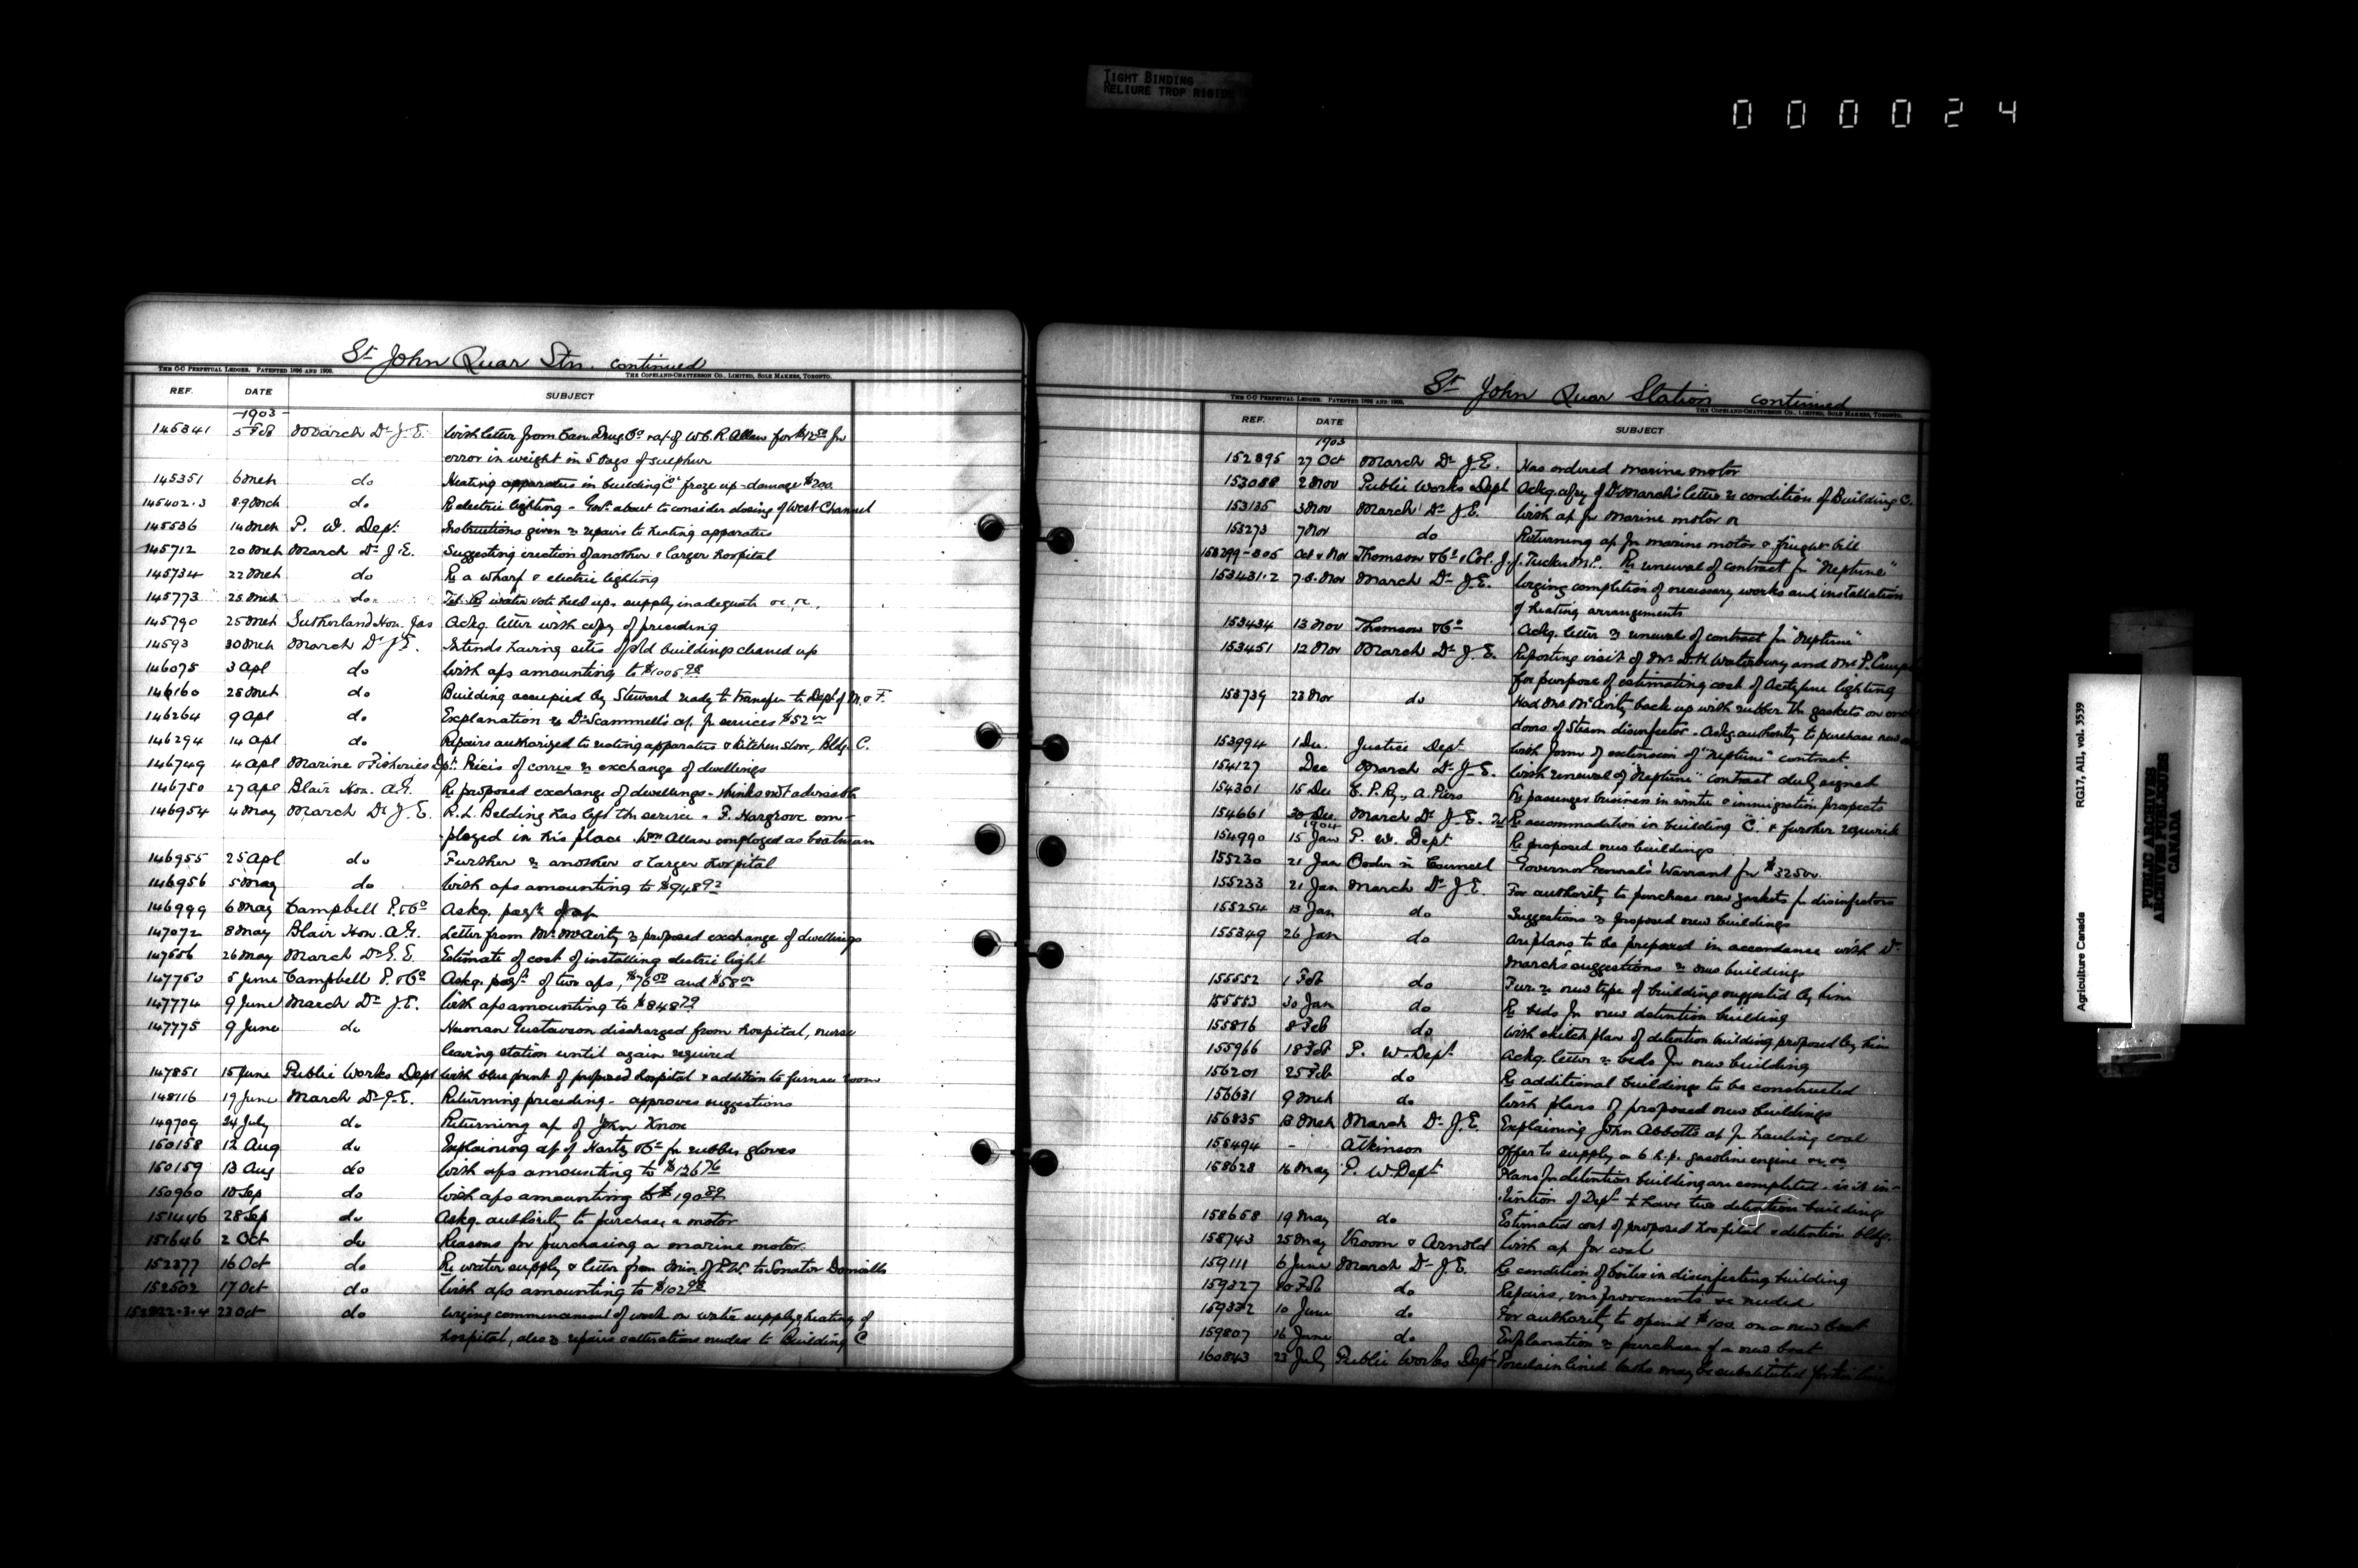 TIGHT BINDING
RELIURE TROP RIGIDE
000024
St John Quar Stn. continued
THE C-C PERPETUAL LEDGER. PATENTED 1896 AND 1900.
THE COPELAND-CHATTERSON CO., LIMITED, SOLE MAKERS, TORONTO.
REF. DATE SUBJECT
1903
145341 5 Feb March Dr J.E. With letter from Can Drug Co & a/c of W.C.R. Allan for $12.50 for
error in weight in 5 bags of sulphur
145351 6 Mch do Heating apparatus in building "C" froze up - damage $200.
145402.3 8.9 Mch do Re electric lighting - Govt. about to consider closing of West Channel
145536 14 Mch P. W. Dept. Instructions given re repairs to heating apparatus
145712 20 Mch March Dr J.E. Suggesting erection of another & larger hospital
145734 22 Mch do Re a wharf & electric lighting
145773 25 Mch do Tel. Re water vote held up, supply inadequate &c, &c,
145790 25 Mch Sutherland Hon. Jas Ackg. letter with copy of preceding
14593 30 Mch March Dr J.E. Intends having sites of old buildings cleaned up
146075 3 Apl do With a/cs amounting to $1005.98
146160 25 Mch do Building occupied by Steward ready to transfer to Dept of M. & F.
146264 9 Apl do Explanation re Dr Scammell's a/c for services $52.00
146294 14 Apl do Repairs authorized to heating apparatus & kitchen stove, Bldg. C.
146749 4 Apl Marine & Fisheries Dpt. Précis of corres re exchange of dwellings
146750 27 Apl Blair Hon. A.G. Re proposed exchange of dwellings - thinks not advisable
146954 4 May March Dr J.E. R.L. Belding has left the service - F. Hargrove em-
ployed in his place. Wm Allan employed as boatman
146955 25 Apl do Further re another & larger hospital
146956 5 May do With a/cs amounting to $948.92
146999 6 May Campbell P. & Co Askg. payt of a/c
147072 8 May Blair Hon. A.G. Letter from Mr McAvity re proposed exchange of dwellings
147556 26 May March Dr J.E. Estimate of cost of installing electric light
147750 5 June Campbell P. & Co Askg. payt of two a/cs, $76.00 and $58.00
147774 9 June March Dr J.E. With a/cs amounting to $848.79
147775 9 June do Herman Gustavson discharged from hospital, nurse
leaving station until again required
147851 15 June Public Works Dept With blue print of proposed hospital & addition to furnace room
148116 19 June March Dr J.E. Returning preceding - approves suggestions
149709 24 July do Returning a/c of John Knox
150158 12 Aug do Explaining a/c of Hartz & Co for rubber gloves
150159 13 Aug do With a/cs amounting to $126.76
150960 10 Sep do With a/cs amounting to $190.89
151446 28 Sep do Askg. authority to purchase a motor
151646 2 Oct do Reasons for purchasing a marine motor.
152377 16 Oct do Re water supply & letter from Min. of P.W. to Senator Domville
152502 17 Oct do With a/cs amounting to $102.98
152822.3.4 23 Oct do Urging commencement of work on water supply & heating of
hospital, also re repairs & alterations needed to Building C
St John Quar Station continued
THE C-C PERPETUAL LEDGER. PATENTED 1896 AND 1900.
THE COPELAND-CHATTERSON CO., LIMITED, SOLE MAKERS, TORONTO.
REF. DATE SUBJECT
1903
152895 27 Oct March Dr J.E. Has ordered marine motor
153088 2 Nov Public Works Dept Ackg. copy of Dr March's letter re condition of Building C.
153135 3 Nov March Dr J.E. With a/c for marine motor &c
153273 7 Nov do Returning a/c for marine motor & freight bill
153299-305 Oct & Nov Thomson & Co & Col. J.J. Tucker M.P. Re renewal of contract for "Neptune"
153431.2 7.8. Nov March Dr J.E. Urging completion of necessary works and installation
of heating arrangements
153434 13 Nov Thomson & Co Ackg. letter re renewal of contract for "Neptune"
153451 12 Nov March Dr J.E. Reporting visit of Mr D.H. Waterbury and Mr P.
for purpose of estimating cost of Acetylene lighting
153739 23 Nov do Had Mr McAvity back up with rubber the gaskets on
doors of Steam disinfector - Askg. authority to purchase new
153994 1 Dec. Justice Dept With form of extension of "Neptune" contract
154127 Dec March Dr J.E. With renewal of "Neptune" contract duly signed
154301 15 Dec C.P. Ry., A. Piers Re passenger business in winter & immigration prospects
154661 30 Dec. March Dr J.E. Re accommodation in building "C." & further
1904
154990 15 Jan P. W. Dept Re proposed new buildings
155230 21 Jan Order in Council Governor General's Warrant for $3250.
155233 21 Jan March Dr J.E. For authority to purchase new gaskets for disinfectors
155254 13 Jan do Suggestions re proposed new buildings
155349 26 Jan do Are plans to be prepared in accordance with Dr
March's suggestions re new buildings
155552 1 Feb do Fur. re new type of building suggested by him
155553 30 Jan do Re beds for new detention building
155816 8 Feb do With sketch plan of detention building proposed by him
155966 18 Feb P. W. Dept. Ackg. letter re beds for new building
156201 25 Feb do Re additional buildings to be constructed
156631 9 Mch do With plans of proposed new buildings
156835 13 Mch March Dr J.E. Explaining John Abbott's a/c for hauling coal
158494 - Atkinson Offer to supply a 6 h.p. gasoline engine &c, &c,
158628 16 May P. W. Dept Plans for detention building are completed - is it in-
tention of Dept to have two detention buildings
158658 19 May do Estimated cost of proposed hospital & detention bldg.
158743 25 May Vroom & Arnold With a/c for coal
159111 6 June March Dr J.E. Re condition of boiler in disinfecting building
159327 10 Feb do Repairs, improvements &c needed
159332 10 June do For authority to spend $100. on a new boat
159807 16 June do Explanation re purchase of a new boat
160843 23 July Public Works Dept Porcelain lined baths may be substituted for
Agriculture Canada RG17, AII, vol. 3539
PUBLIC ARCHIVES
ARCHIVES PUBLIQUES
CANADA